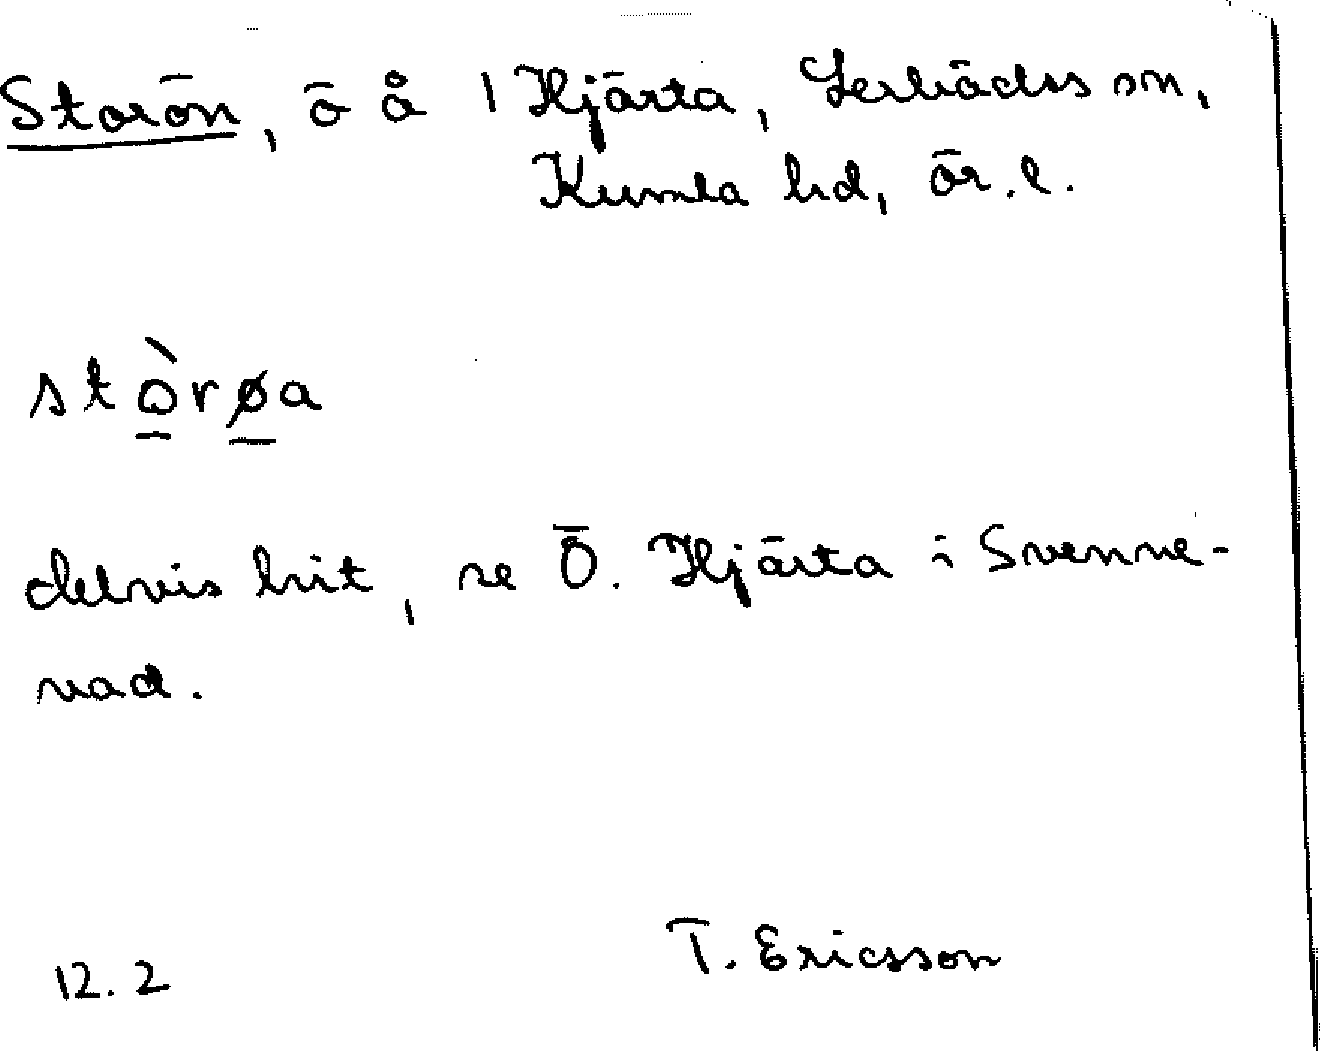 Storön, ö å 1 Hjärta, Lerbäcks sn,
Kumla hd, Ör. l.
stòrøa
delvis hit, se Ö. Hjärta i Svenne-
vad.
12.2 T. Ericsson